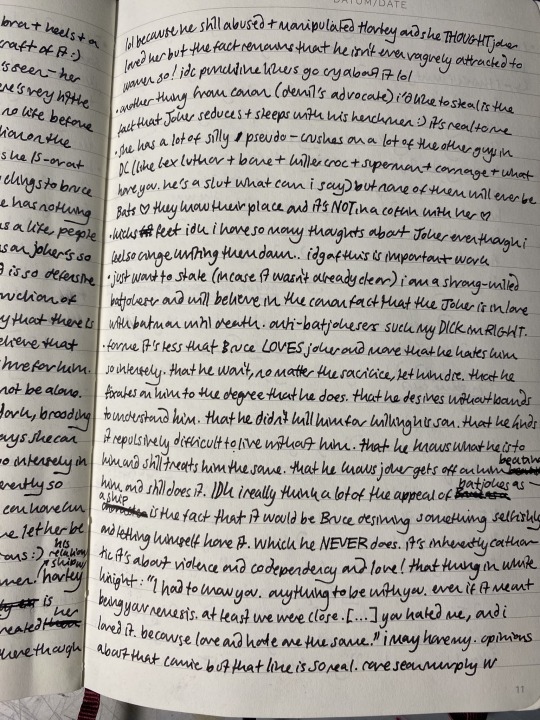 DATUM/DATE
bra + heels + a
craft of it :)
's seen - her
ere's very little
no life before
she is - or at
clings to bruce
e has nothing
as a life, people
s an joker's so
d is so defensive
y that there is
elieve that
not be alone.
dark, brooding
ays she can
so intensely in
erently so
can have in
e let her be
his
rans :) relation
ship w/
mer. harley
is
her
where though
lol because he still abused + manipulated Harley and she THOUGHT joker
loved her but the fact remains that he isn't even vaguely attracted to
women so! idc punchline likers go cry about it lol
· another thing from canon (devil's advocate) i'd like to steal is the
fact that Joker seduces + sleeps with his henchmen :) it's real to me
· she has a lot of silly pseudo-crushes on a lot of the other guys in
DC (like lex luthor + bane + killer croc + superman + carnage + what
have you. he's a slut what can i say) but none of them will ever be
Bats ♡ they know their place and it's NOT in a coffin with her ♡
· kicks feet idk i have so many thoughts about Joker even though i
feel so cringe writing them down.. idgaf this is important work
· just want to state (in case it wasn't already clear) i am a strong-willed
batjokester and will believe in the canon fact that the Joker is in love
with batman until death. anti-batjokesers suck my DICK im RIGHT.
· for me it's less that Bruce LOVES joker and more that he hates him
so intensely. that he won't, no matter the sacrifice, let him die. that he
fixates on him to the degree that he does. that he desires without bounds
to understand him. that he didn't kill him for killing his son. that he finds
it repulsively difficult to live without him. that he knows what he is to
him and still treats him the same. that he knows joker gets off on him beating
him and still does it. IDK i really think a lot of the appeal of batjokes as
a ship is the fact that it would be Bruce desiring something selfishly
and letting himself have it. which he NEVER does. it's inherently cathar-
tic it's about violence and codependency and love! that thing in white
knight: "I had to know you. anything to be with you. even if it meant
being your nemesis. at least we were close. [...] you hated me, and i
loved it. because love and hate are the same." i may have my opinions
about that comic but that line is so real. rare sean murphy W
11